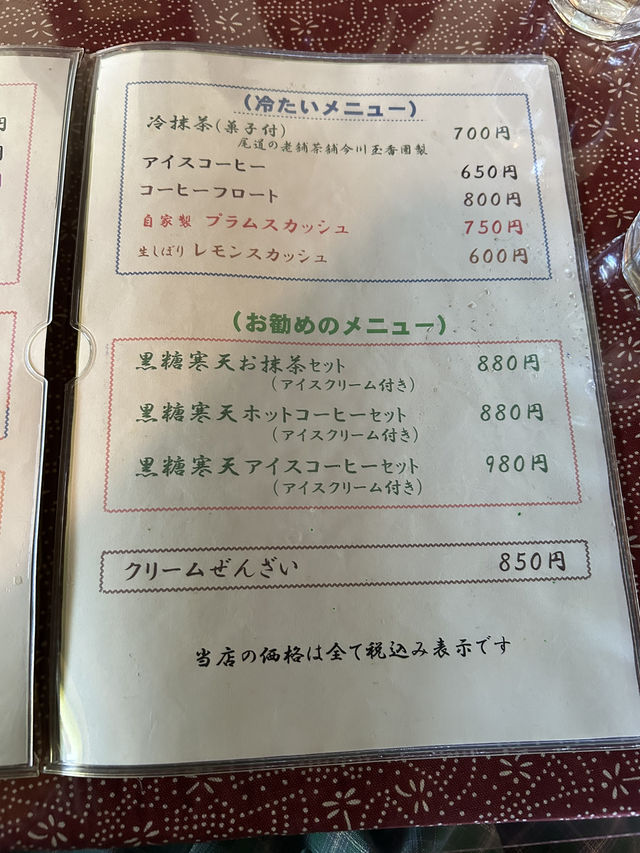 (冷たいメニュー)
冷抹茶(菓子付) 700円
尾道の老舗茶舗今川玉香園製
アイスコーヒー 650円
コーヒーフロート 800円
自家製 プラムスカッシュ 750円
生しぼり レモンスカッシュ 600円
(お勧めのメニュー)
黒糖寒天お抹茶セット 880円
(アイスクリーム付き)
黒糖寒天ホットコーヒーセット 880円
(アイスクリーム付き)
黒糖寒天アイスコーヒーセット 980円
(アイスクリーム付き)
クリームぜんざい 850円
当店の価格は全て税込み表示です
円
円